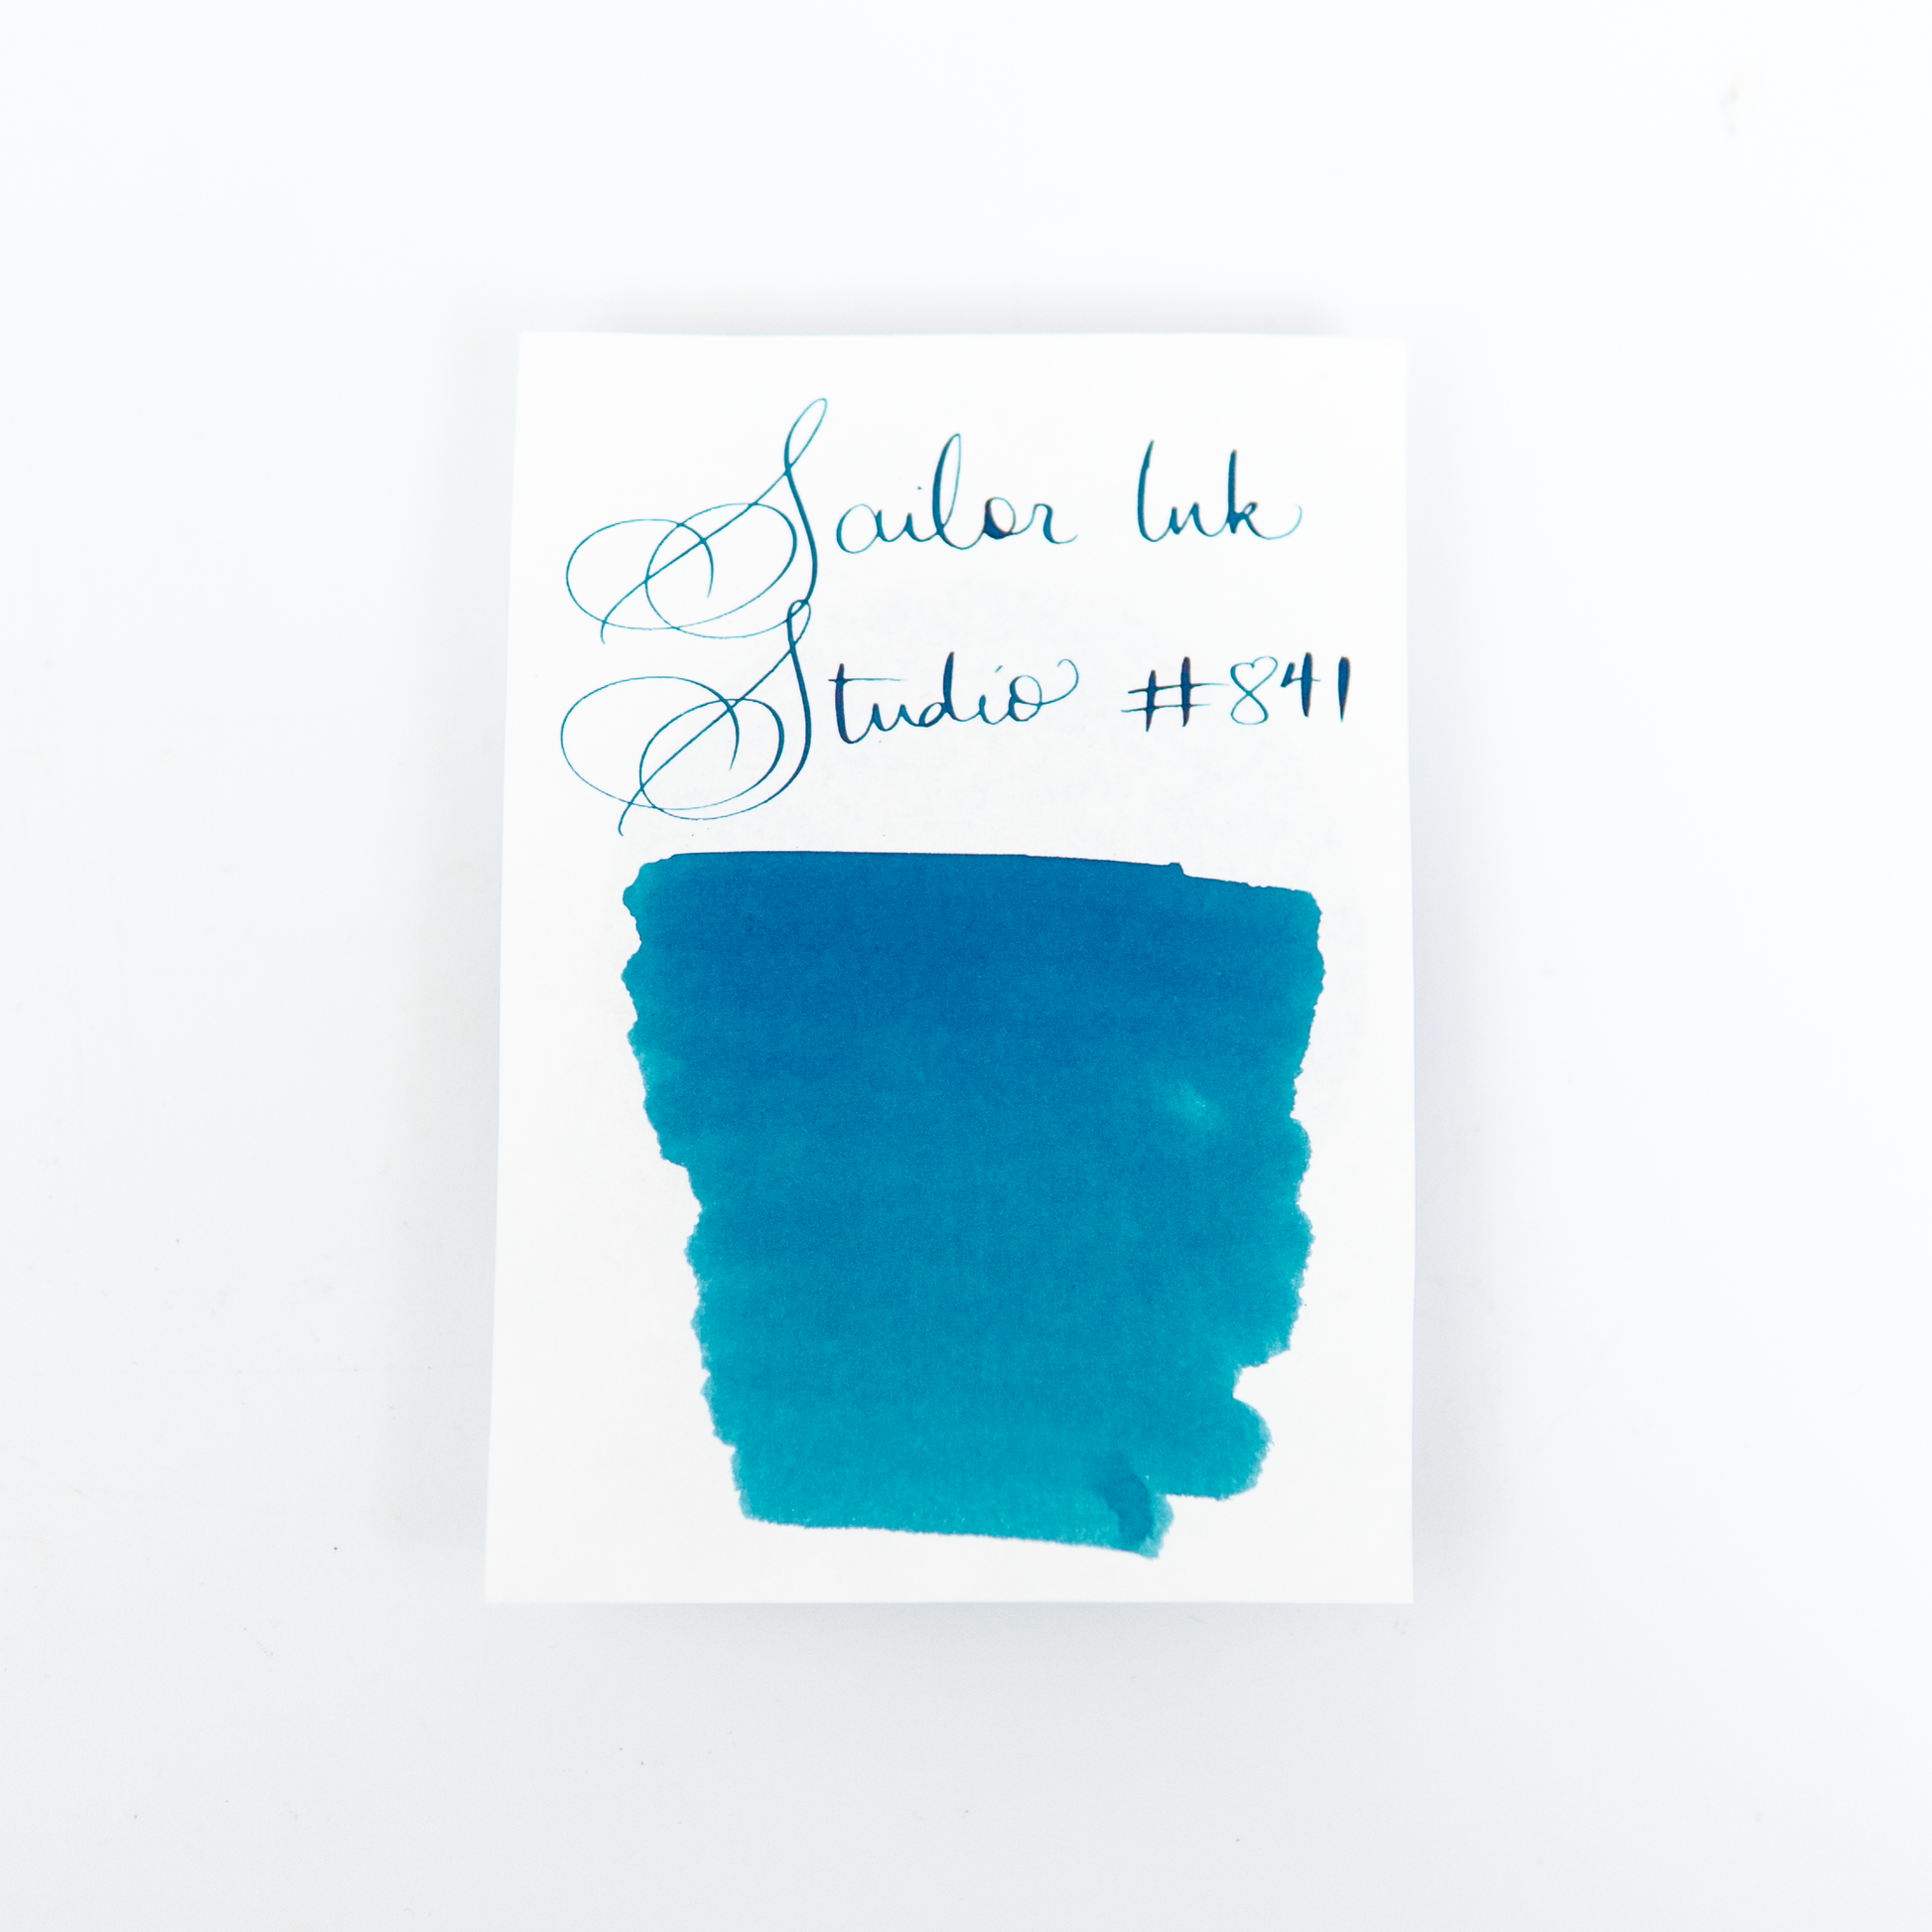 Sailor Ink
Studio #841